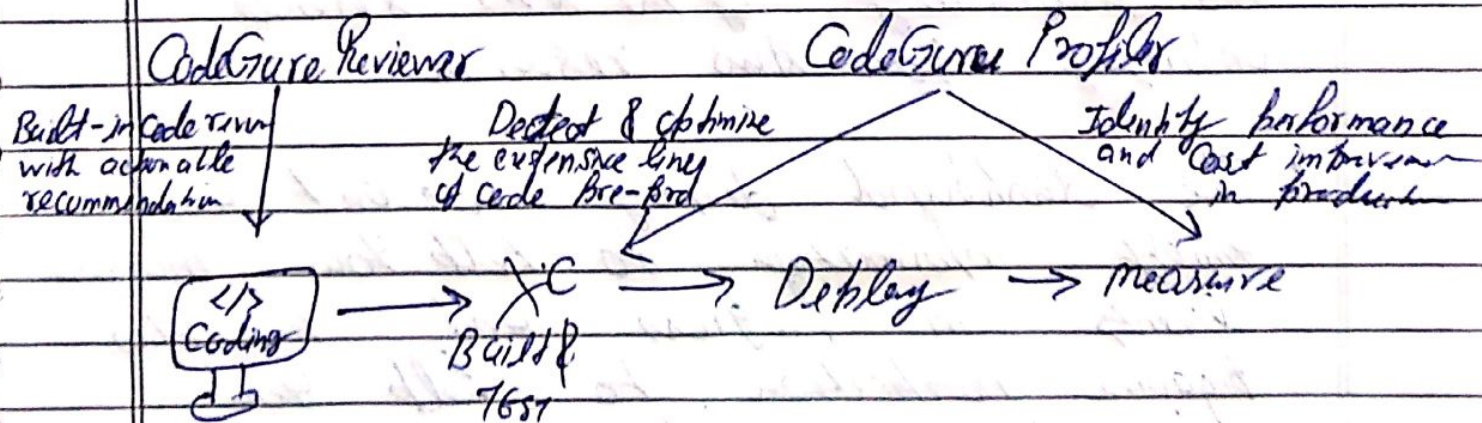 CodeGuru Reviewer
CodeGuru Profiler
Built-in code revew
with actionable
recommendation
Dectect & optimize
the expensive lines
of code Pre-Prod
Identify performance
and Cost improvemen
in production
</>
Coding
Build &
TEST
Deploy
measure